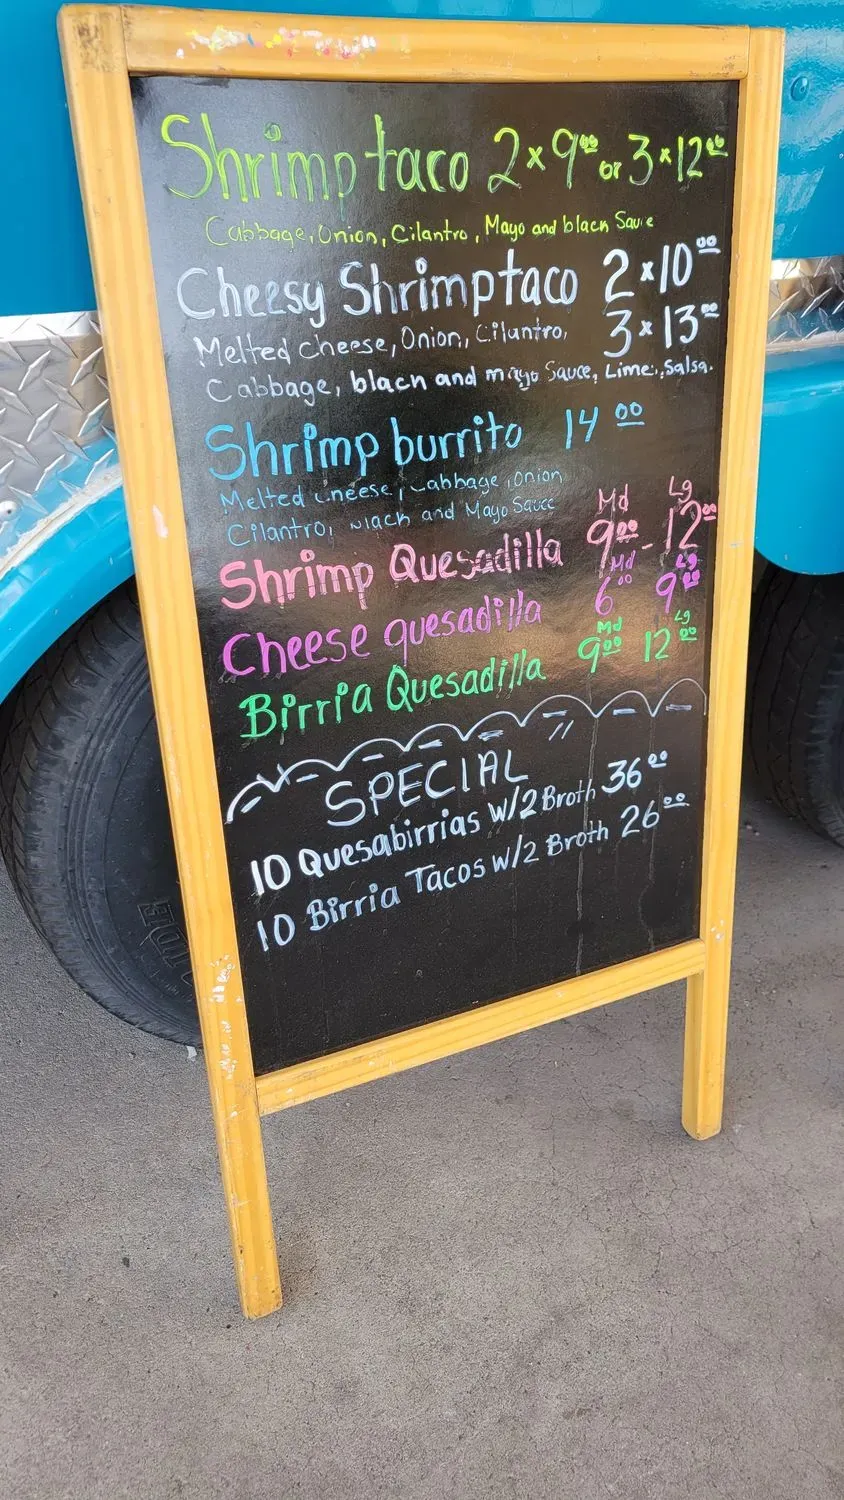 Shrimp taco 2 x 9.00 or 3 x 12.00
Cabbage, Onion, Cilantro, Mayo and black Sauce
Cheesy Shrimp taco 2 x 10.00
3 x 13.00
Melted cheese, Onion, Cilantro,
Cabbage, black and mayo Sauce, Lime, Salsa.
Shrimp burrito 14 00
Melted cheese, Cabbage, Onion
Cilantro, black and Mayo Sauce
Md Lg
Shrimp Quesadilla 9.00 - 12.00
Md Lg
Cheese quesadilla 6.00 9.00
Md Lg
Birria Quesadilla 9.00 12.00
SPECIAL
10 Quesabirrias w/2 Broth 36.00
10 Birria Tacos w/2 Broth 26.00